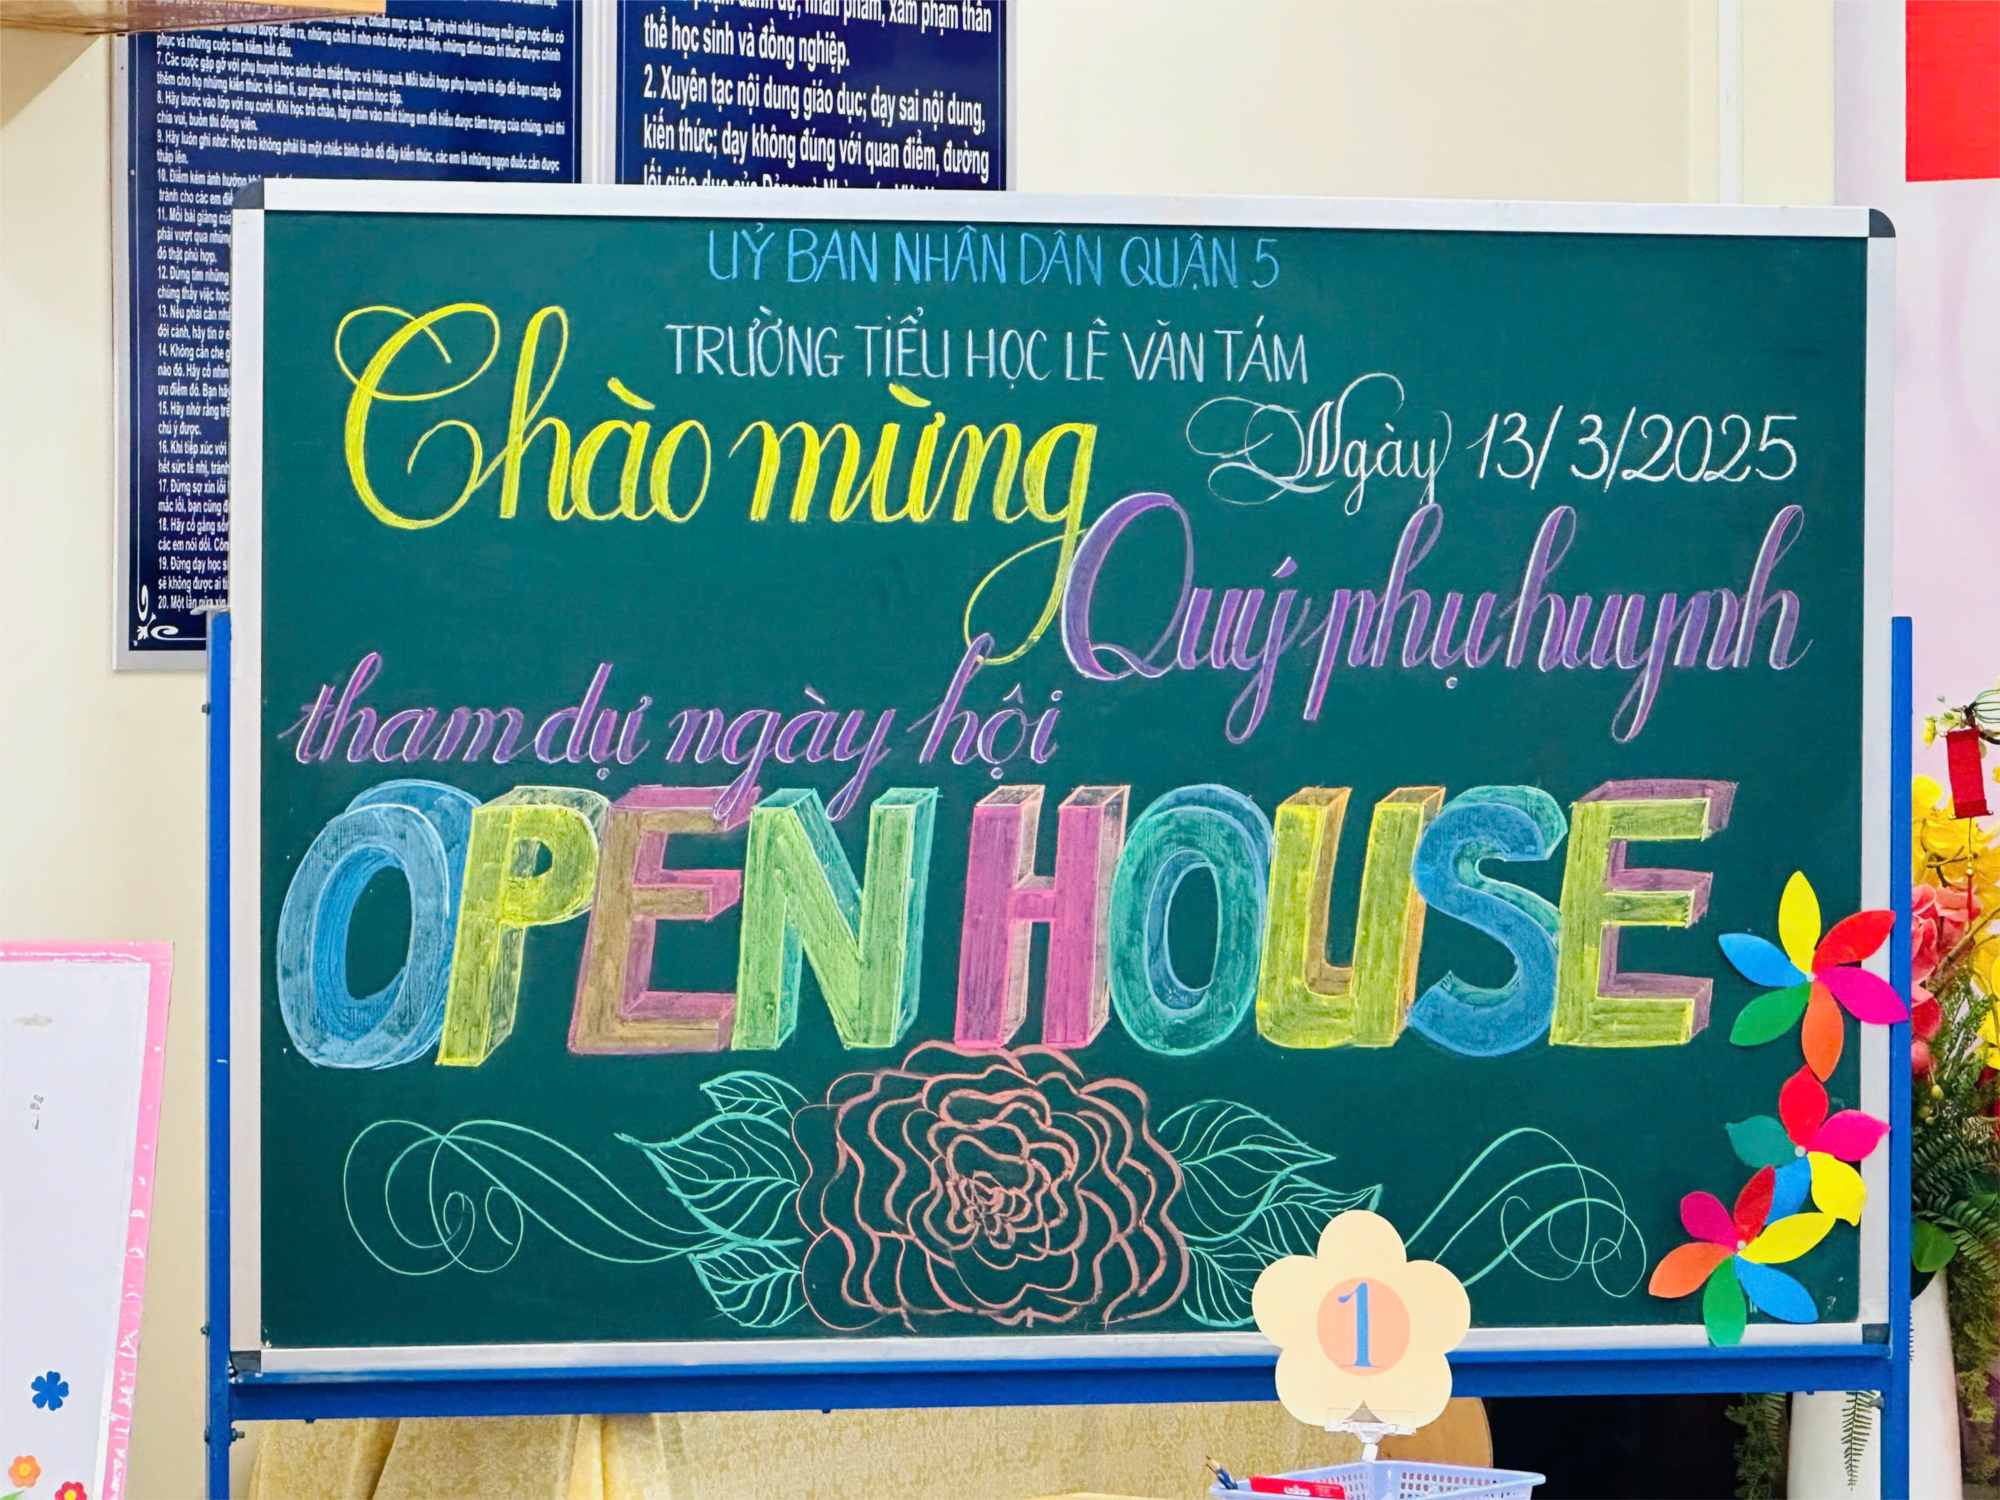 quả, chuẩn mực quả. Tuyệt vời nhất là trong mỗi giờ học đều có
nhỏ được diễn ra, những chân lí nho nhỏ được phát hiện, những đỉnh cao tri thức được chinh
phục và những cuộc tìm kiếm bắt đầu.
7. Các cuộc gặp gỡ với phụ huynh học sinh cần thiết thực và hiệu quả. Mỗi buổi họp phụ huynh là dịp để bạn cung cấp
thêm cho họ những kiến thức về tâm lí, sư phạm, về quá trình học tập.
8. Hãy bước vào lớp với nụ cười. Khi học trò chào, hãy nhìn vào mắt từng em để hiểu được tâm trạng của chúng, vui thì
chia vui, buồn thì động viên.
9. Hãy luôn ghi nhớ: Học trò không phải là một chiếc bình cần đổ đầy kiến thức, các em là những ngọn đuốc cần được
thắp lên.
10. Điểm kém ảnh hưởng
tránh cho các em
11. Mỗi bài giảng của
phải vượt qua những
đó thật phù hợp.
12. Đừng tìm những
chúng thấy việc học
13. Nếu phải cân
đối cảnh, hãy tin ở
14. Không cần che
nào đó. Hãy cố
ưu điểm đó. Bạn
15. Hãy nhớ rằng
chú ý được.
16. Khi tiếp xúc với
hết sức tế nhị, tránh
17. Đừng sợ xin lỗi
mắc lỗi, bạn cũng
18. Hãy cố gắng
các em nói dối.
19. Đừng dạy học
sẽ không được ai
20. Một lần nữa xin
phạm danh dự, nhân phẩm, xâm phạm thân
thể học sinh và đồng nghiệp.
2. Xuyên tạc nội dung giáo dục; dạy sai nội dung,
kiến thức; dạy không đúng với quan điểm, đường
lối giáo dục của Đảng và Nhà nước Việt
UỶ BAN NHÂN DÂN QUẬN 5
TRƯỜNG TIỂU HỌC LÊ VĂN TÁM
Chào mừng
Ngày 13/3/2025
Quý phụ huynh
tham dự ngày hội
OPEN HOUSE
1